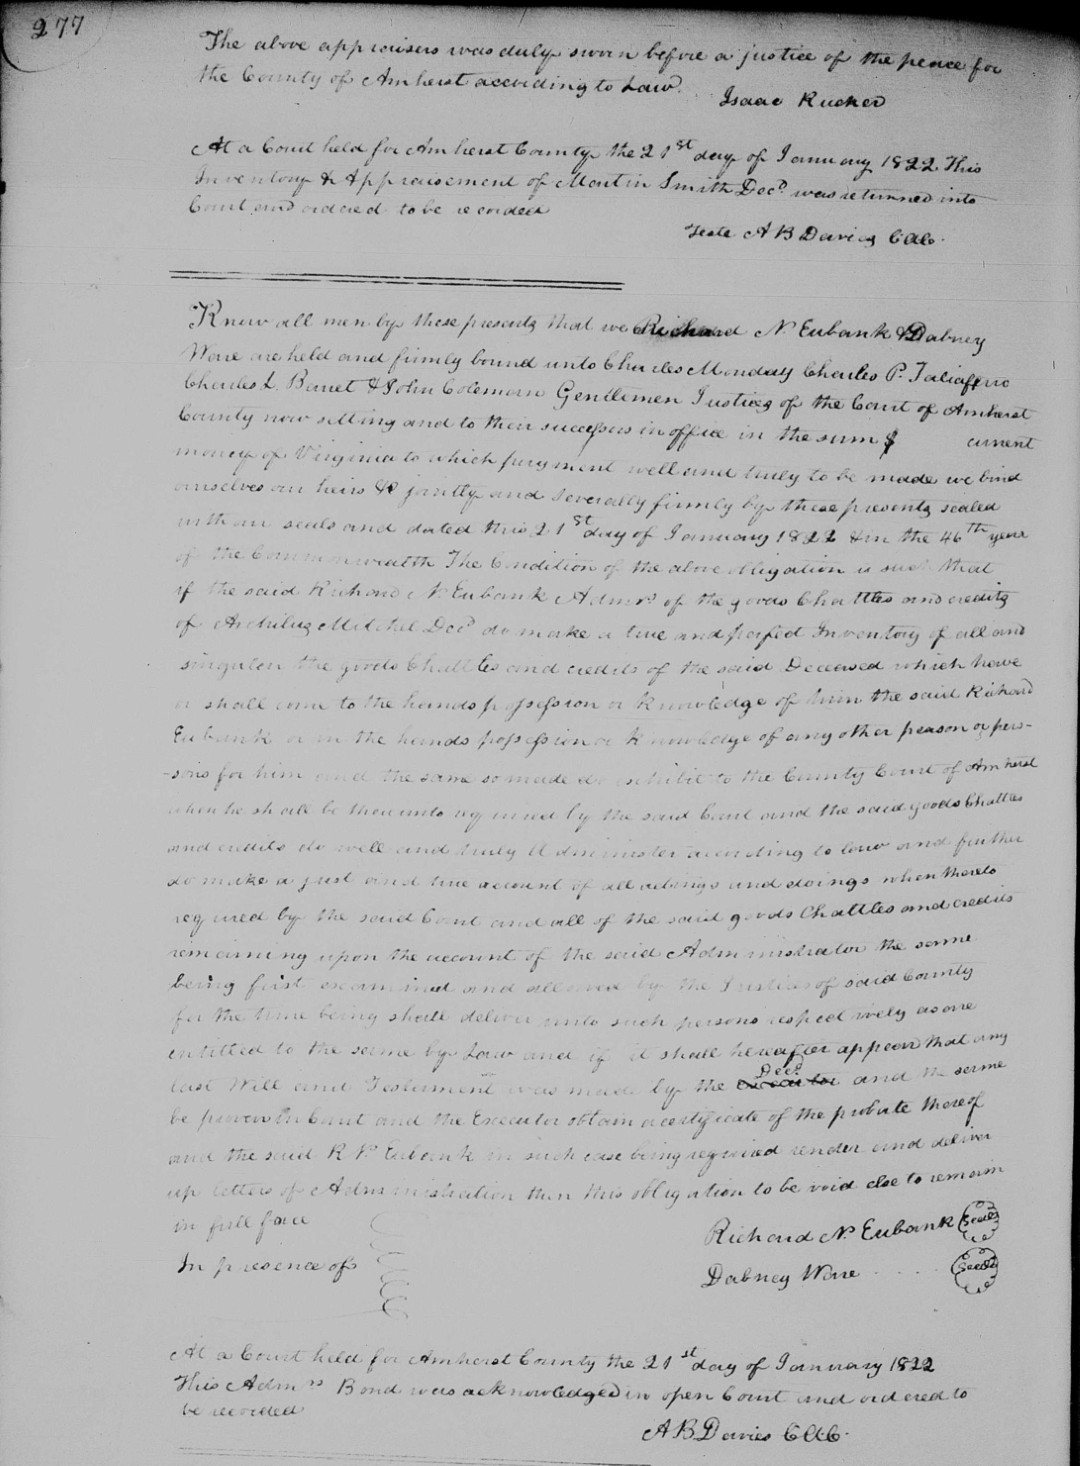 277
The above appraisers was duly sworn before a justice of the peace for
the County of Amherst according to Law. Isaac Rucker
At a Court held for Amherst County the 21st day of January 1822 This
Inventory & Appraisement of Martin Smith Decd. was returned into
Court and ordered to be recorded
Teste A B Davies CAC.
Know all men by these presents that we Richard N. Eubank & Dabney
Ware are held and firmly bound unto Charles Monday Charles P. Taliaferro
Charles L. Barret & John Coleman Gentlemen Justices of the Court of Amherst
County now sitting and to their successors in office in the sum $ current
money of Virginia to which payment well and truly to be made we bind
ourselves our heirs &c jointly and severally firmly by these presents sealed
with our seals and dated this 21st day of January 1822 & in the 46th year
of the Commonwealth The Condition of the above obligation is such that
if the said Richard N. Eubank Admr. of the goods Chattles and credits
of Archilus Mitchel Decd. do make a true and perfect Inventory of all and
singular the goods Chattles and credits of the said Deceased which have
or shall come to the hands possession or knowledge of him the said Richard
Eubank or in the hands possession or knowledge of any other person or per-
-sons for him and the same so made do exhibit to the County Court of Amherst
when he shall be thereunto required by the said Court and the said goods Chattles
and credits do well and truly Administer according to law and further
do make a just and true account of all actings and doings when thereto
required by the said Court and all of the said goods Chattles and credits
remaining upon the account of the said Administrator the same
being first examined and allowed by the Justices of said County
for the time being shall deliver unto such persons respectively as are
intitled to the same by Law and if it shall hereafter appear that any
last Will and Testament was made by the Decd. and the same
be proven in Court and the Executor obtain a certificate of the probate thereof
and the said R N. Eubank in such case being required render and deliver
up letters of Administration then this obligation to be void else to remain
in full force
Richard N. Eubank Seal
In presence of
Dabney Ware Seal
At a Court held for Amherst County the 21st day of January 1822
This Admrs Bond was acknowledged in open Court and ordered to
be recorded
A B Davies CAC.